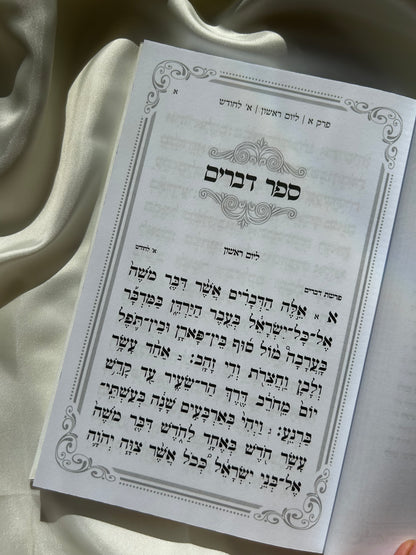 א
פרק א | ליום ראשון | א' לחודש
ספר דברים
פרשת דברים ליום ראשון א' לחודש
א א אֵלֶּה הַדְּבָרִים אֲשֶׁר דִּבֶּר מֹשֶׁה
אֶל־כׇּל־יִשְׂרָאֵל בְּעֵבֶר הַיַּרְדֵּן בַּמִּדְבָּר
בָּעֲרָבָה מוֹל סוּף בֵּין־פָּארָן וּבֵין־תֹּפֶל
וְלָבָן וַחֲצֵרֹת וְדִי זָהָב׃ ב אַחַד עָשָׂר
יוֹם מֵחֹרֵב דֶּרֶךְ הַר־שֵׂעִיר עַד קָדֵשׁ
בַּרְנֵעַ׃ ג וַיְהִי בְּאַרְבָּעִים שָׁנָה בְּעַשְׁתֵּי־
עָשָׂר חֹדֶשׁ בְּאֶחָד לַחֹדֶשׁ דִּבֶּר מֹשֶׁה
אֶל־בְּנֵי יִשְׂרָאֵל כְּכֹל אֲשֶׁר צִוָּה יְהֹוָה